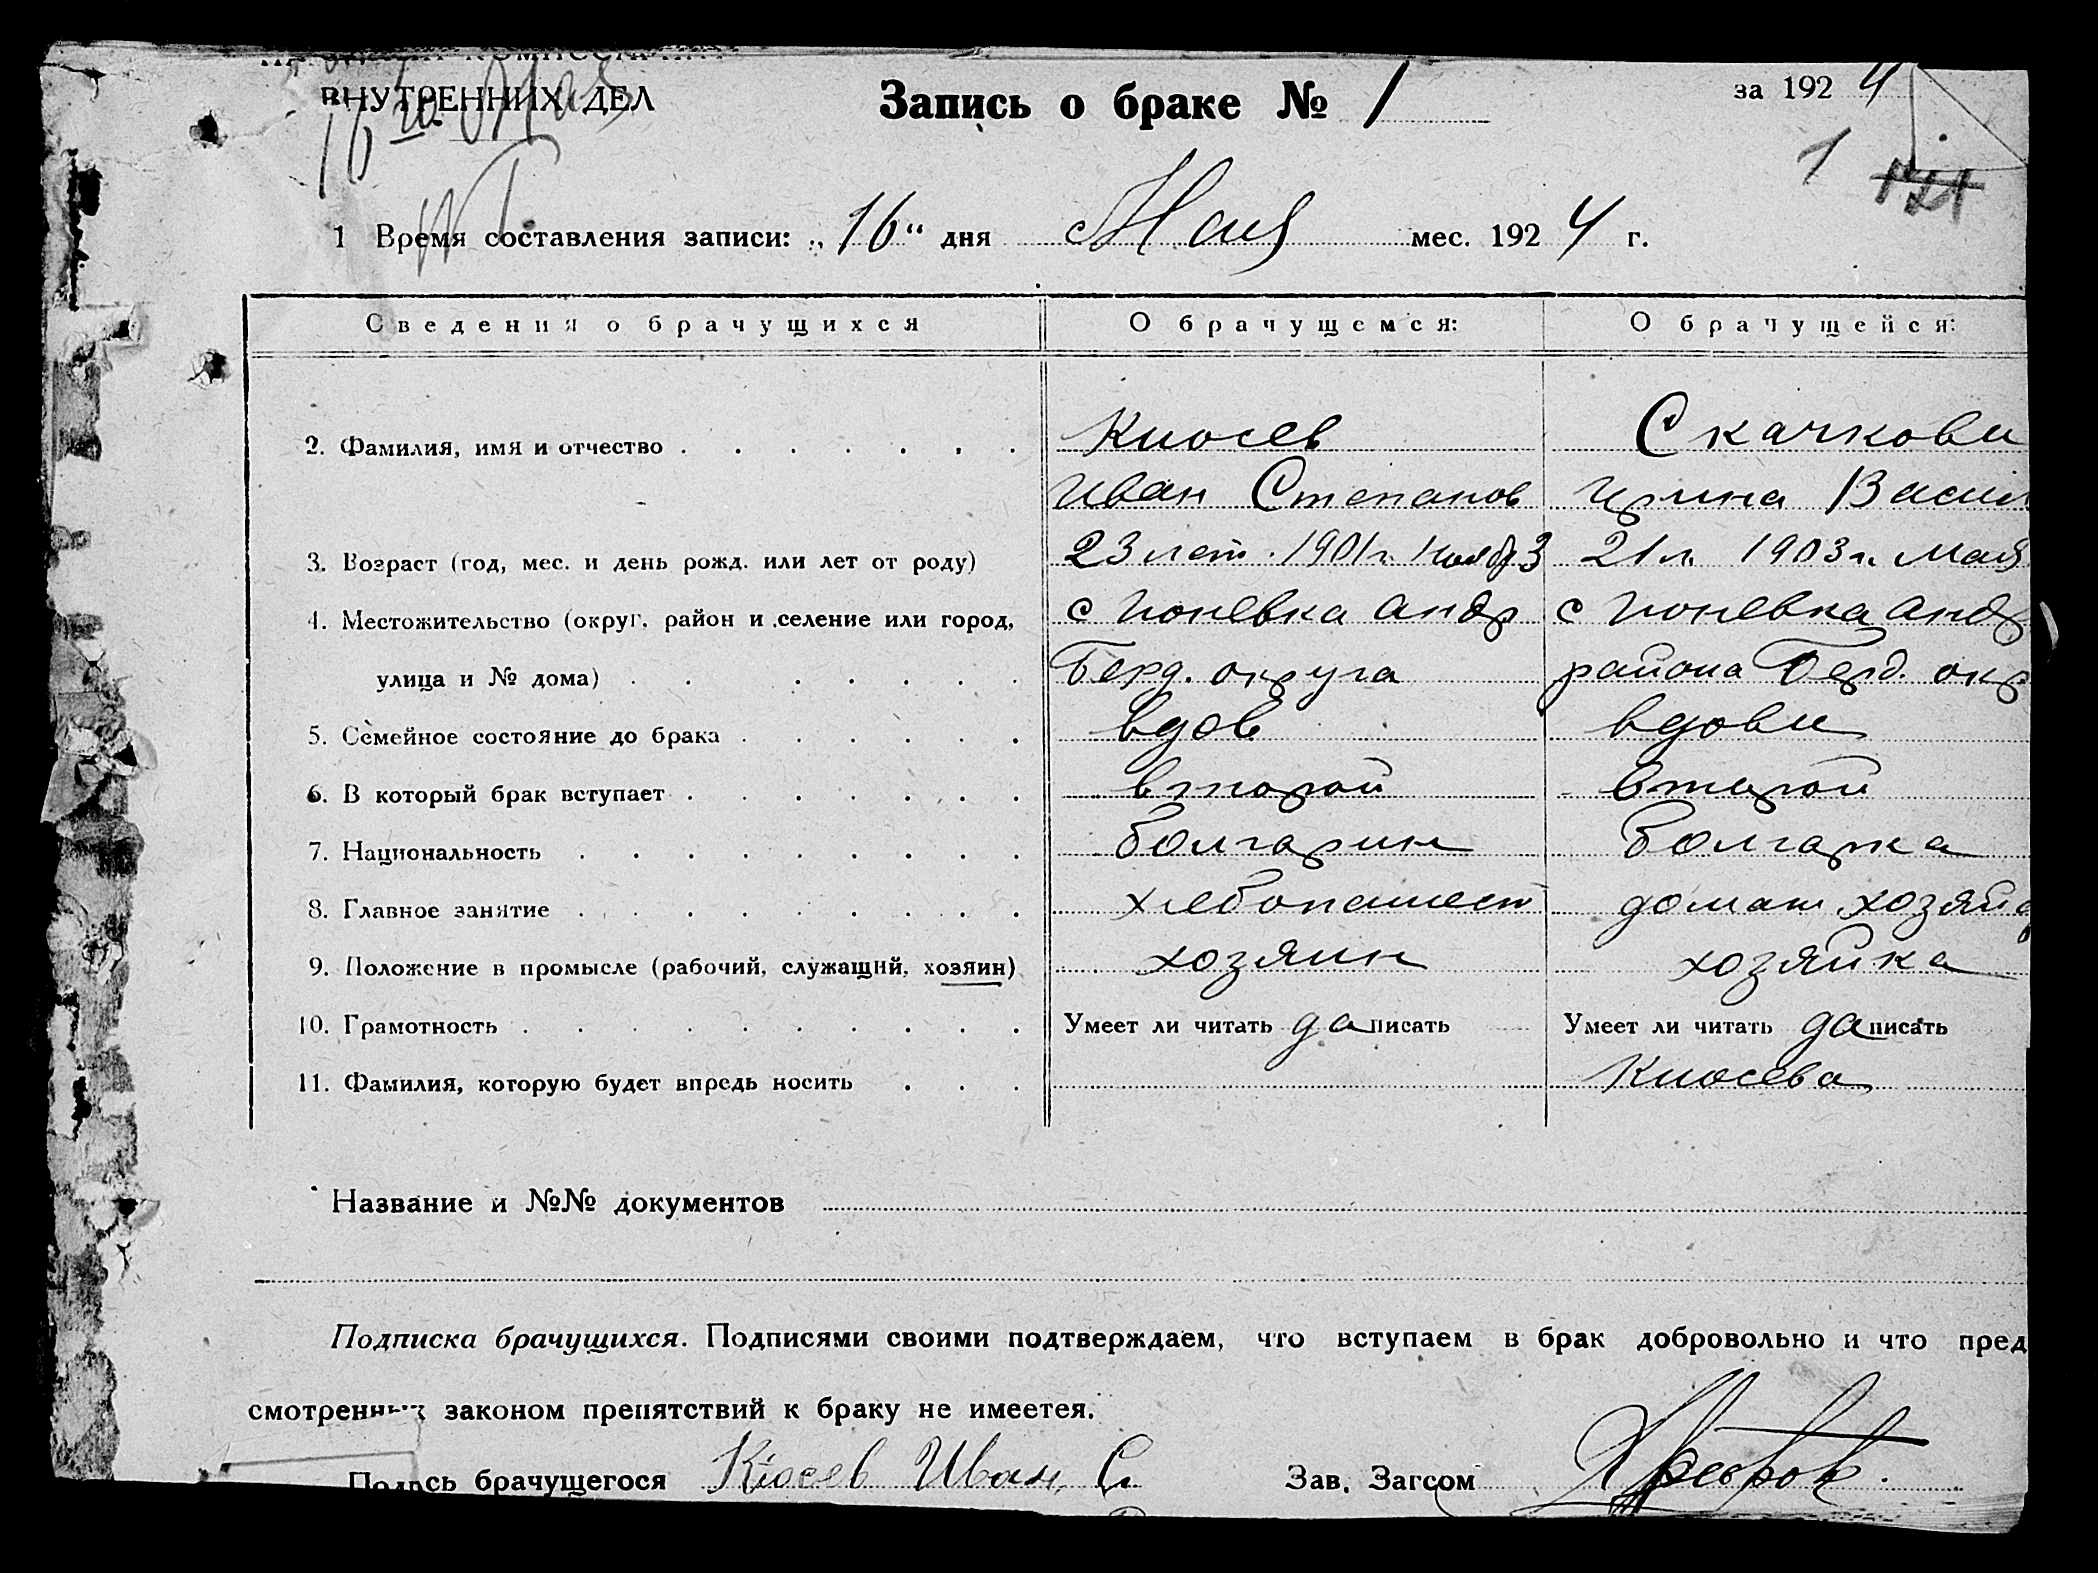 ВНУТРЕННИХ ДЕЛ
16 го Мая
Запись о браке № 1
за 1924
1
121
1 Время составления записи: „16“ дня Мая мес. 1924 г.
Сведения о брачущихся О брачущемся: О брачущейся:
2. Фамилия, имя и отчество Киосев Скачкови
Иван Степанов Ирина Васил
3. Возраст (год, мес. и день рожд. или лет от роду) 23 лет. 1901 г. 21 л. 1903 г. Мая
4. Местожительство (округ, район и селение или город, с андр с андр
улица и № дома) Берд. округа района Берд. окр
5. Семейное состояние до брака вдов вдови
6. В который брак вступает второй второй
7. Национальность болгарин болгарка
8. Главное занятие хлебопашест домаш. хозяйс
9. Положение в промысле (рабочий, служащий, хозяин) хозяин хозяйка
10. Грамотность Умеет ли читать да писать Умеет ли читать да писать
11. Фамилия, которую будет впредь носить Киосева
Название и №№ документов
Подписка брачущихся. Подписями своими подтверждаем, что вступаем в брак добровольно и что пред
смотренных законом препятствий к браку не имеется.
Подпсь брачущегося Кіосев Иван С. Зав. Загсом